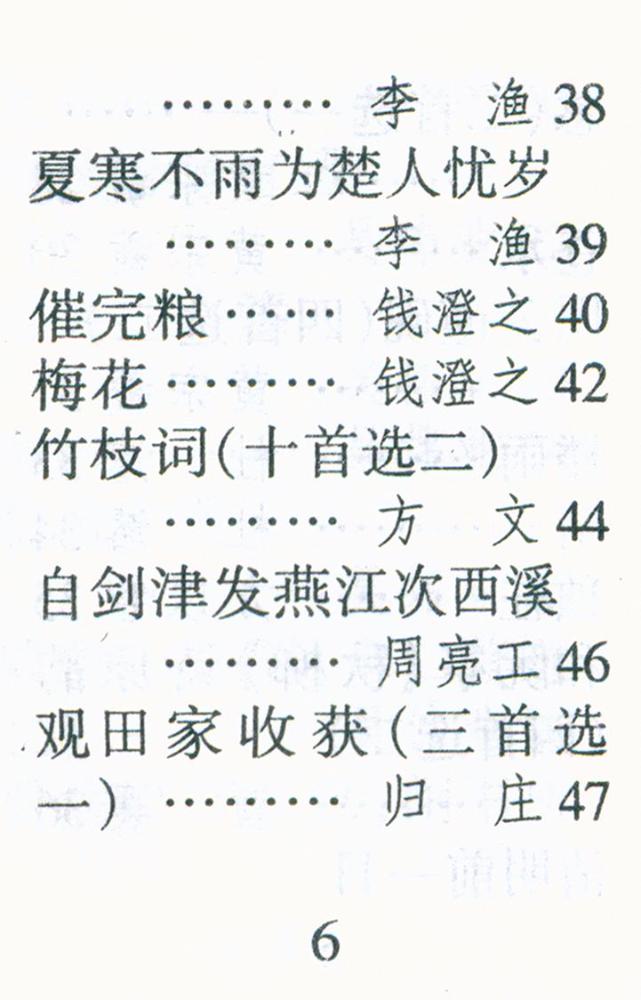 ………李　渔 38
夏寒不雨为楚人忧岁
………李　渔 39
催完粮……钱澄之 40
梅花………钱澄之 42
竹枝词(十首选二)
………方　文 44
自剑津发燕江次西溪
………周亮工 46
观田家收获(三首选
一)………归　庄 47
6